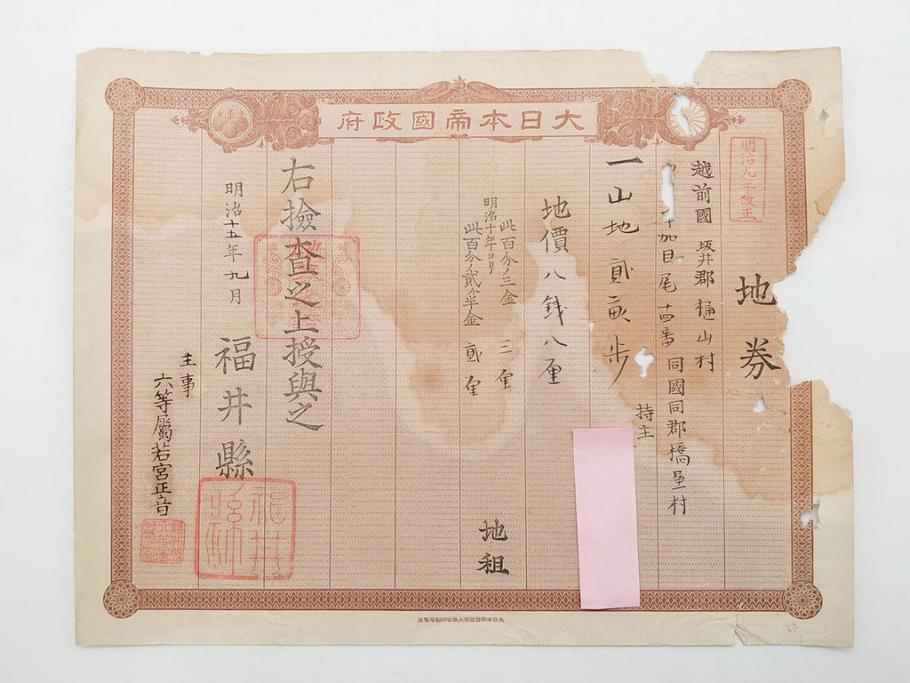 大日本帝國政府
明治九年改正
地券
越前國 坂井郡 樋山村
字加目尾 十四番 同國同郡橋屋村
持主
一山地 貳畝歩
地價八銭八厘
此百分ノ三金 三厘
明治十年ヨリ
此百分ノ貳ケ半金 貳厘
地租
右撿査之上授與之
明治十五年九月
福井縣
主事
六等屬若宮正音
福井縣